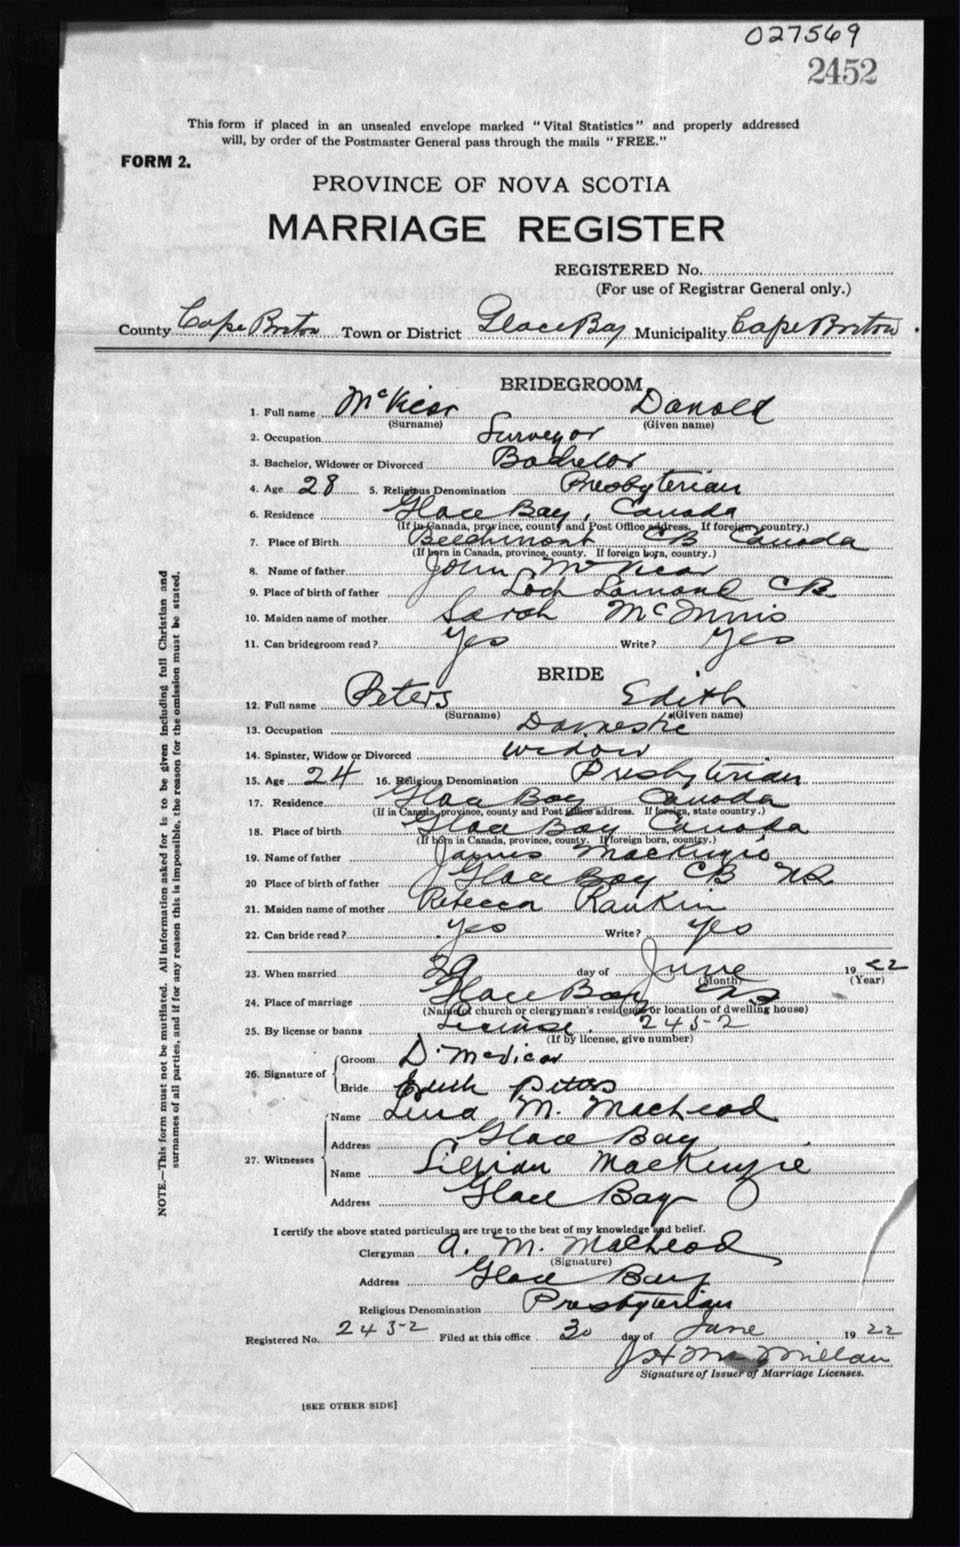 027569
2452
This form if placed in an unsealed envelope marked "Vital Statistics" and properly addressed
will, by order of the Postmaster General pass through the mails "FREE."
FORM 2.
PROVINCE OF NOVA SCOTIA
MARRIAGE REGISTER
REGISTERED No.
(For use of Registrar General only.)
County Cape Breton Town or District Glace Bay Municipality Cape Breton
BRIDEGROOM
1. Full name McVicar Donald
(Surname) (Given name)
2. Occupation Surveyor
3. Bachelor, Widower or Divorced Bachelor
4. Age 28 5. Religious Denomination Presbyterian
6. Residence Glace Bay, Canada
(If in Canada, province, county and Post Office address. If foreign country.)
7. Place of Birth Beechmont CB Canada
(If born in Canada, province, county. If foreign born, country.)
8. Name of father John McVicar
9. Place of birth of father Loch Lomond CB
10. Maiden name of mother Sarah McInnis
11. Can bridegroom read? Yes Write? Yes
BRIDE
12. Full name Peters Edith
(Surname) (Given name)
13. Occupation Domestic
14. Spinster, Widow or Divorced widow
15. Age 24 16. Religious Denomination Presbyterian
17. Residence Glace Bay Canada
(If in Canada, province, county and Post Office address. If foreign, state country.)
18. Place of birth Glace Bay Canada
(If born in Canada, province, county. If foreign born, country.)
19. Name of father James MacKenzie
20 Place of birth of father Glace Bay CB NS
21. Maiden name of mother Rebecca Rankin
22. Can bride read? yes Write? yes
23. When married 29 day of June 1922
(Month) (Year)
24. Place of marriage Glace Bay
(Name of church or clergyman's residence or location of dwelling house)
25. By license or banns License. 2452
(If by license, give number)
26. Signature of Groom D. McVicar
Bride Edith Peters
27. Witnesses Name Lena M. MacLeod
Address Glace Bay
Name Lillian MacKenzie
Address Glace Bay
I certify the above stated particulars are true to the best of my knowledge and belief.
Clergyman A. M. MacLeod
(Signature)
Address Glace Bay
Religious Denomination Presbyterian
Registered No. 2452 Filed at this office 30 day of June 1922
J H McMillan
Signature of Issuer of Marriage Licenses.
[SEE OTHER SIDE]
NOTE.—This form must not be mutilated. All information asked for is to be given including full Christian and
surnames of all parties, and if for any reason this is impossible, the reason for the omission must be stated.